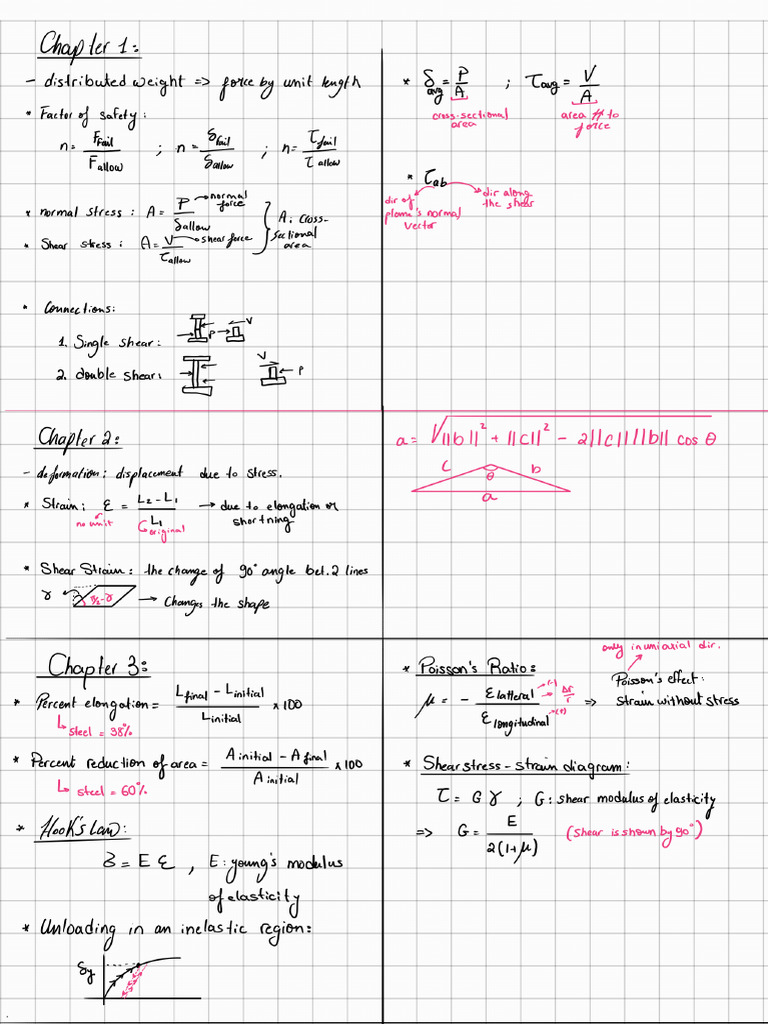 Chapter 1:
- distributed weight => force by unit length
* Factor of safety:
n = F_fail / F_allow ; n = δ_fail / δ_allow ; n = τ_fail / τ_allow
* normal stress: A = P / δ_allow → normal force
* Shear stress: A = V / τ_allow → shear force
A: cross-sectional area
* Connections:
1. Single shear:
P V
2. double shear:
V P
* δ_avg = P / A ; τ_avg = V / A
cross-sectional area
area // to force
* τ_ab
dir of plane's normal vector
dir along the shear
Chapter 2:
- deformation: displacement due to stress.
* Strain: ε = L2 - L1 / L1 → due to elongation or shortning
no unit
original
* Shear Strain: the change of 90° angle bet. 2 lines
γ π/2-γ → Changes the shape
a = √||b||² + ||c||² - 2||c|| ||b|| cos θ
c θ b
a
Chapter 3:
* Percent elongation = L_final - L_initial / L_initial x 100
steel = 38%
* Percent reduction of area = A initial - A final / A initial x 100
steel = 60%
* Hook's Law:
δ = E ε , E: young's modulus
of elasticity
* Unloading in an inelastic region:
δy
* Poisson's Ratio:
only in uniaxial dir.
μ = - ε lateral / ε longitudinal => Poisson's effect: strain without stress
(-) Δr / r
(+)
* Shear stress - strain diagram:
τ = G γ ; G: shear modulus of elasticity
=> G = E / 2(1+μ) (shear is shown by 90°)